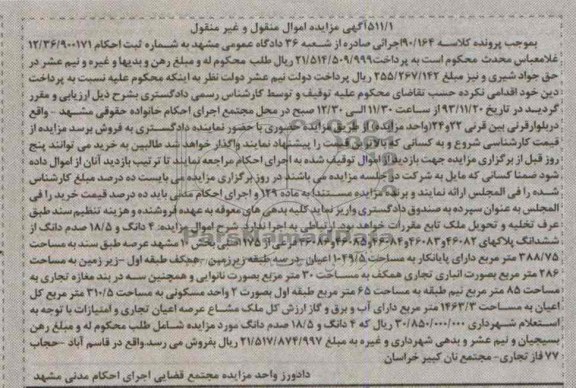 ۵۱۱/۱آگهی مزایده اموال منقول و غیر منقول
بموجب پرونده کلاسه ۹۰/۱۶۴اجرائی صادره از شعبه ۳۶ دادگاه عمومی مشهد به شماره ثبت احکام ۱۲/۳۶/۹۰۰۱۷۱
غلامعباس محدث محکوم است به پرداخت۲۱/۵۱۴/۵۰۹/۹۹۹ریال طلب محکوم له و مبلغ رهن و بدیها و غیره و نیم عشر در
حق جواد شیری و نیز مبلغ ۲۵۵/۲۶۷/۱۴۲ ریال پرداخت دولت نیم عشر دولت نظر به اینکه محکوم علیه نسبت به پرداخت
دین خود اقدامی نکرده حسب تقاضای محکوم علیه توقیف و توسط کارشناس رسمی دادگستری بشرح ذیل ارزیابی و مقرر
گردید در تاریخ ۹۳/۱۱/۲۰ از ساعت ۱۱/۳۰ الی ۱۲/۳۰ صبح در محل مجتمع اجرای احکام خانواده حقوقی مشهد - واقع
دربلوارقرنی بین قرنی ۲۲و۲۴(واحد مزایده) از طریق مزایده حضوری با حضور نماینده دادگستری به فروش برسد مزایده از
قیمت کارشناسی شروع و به کسانی که بالاترین قیمت را پیشنهاد نمایند واگذار خواهد شد طالبین به خرید می توانند پنج
روز قبل از برگزاری مزایده جهت بازدید از اموال توقیف شده به اجرای احکام مراجعه نمایند تا ترتیب بازدید آنان از اموال داده
شود ضمنا کسانی که مایل به شرکت در جلسه مزایده می باشند در روز برگزاری مزایده می بایست ده درصد مبلغ کارشناس
شده را فی المجلس ارائه نمایند و برنده مزایده مستندا به ماده ۱۲۹ و اجرای احکام مدنی باید ده درصد قیمت خرید را فی
المجلس به عنوان سپرده به صندوق دادگستری واریز نماید کلیه بدهی های معوقه به عهده فروشنده و هزینه تنظیم سند طبق
عرف تخلیه و تحویل ملک تابع مقررات خواهد بود ارتباطی به اجرا ندارد شرح اموال مزایده: ۴ دانگ و ۱۸/۵ صدم دانگ از
ششدانگ پلاکهای ۴۶۰۸۲و۴۶۰۸۳و۴۶۰۸۴و مشهد عرصه طبق سند به مساحت
۳۸۸/۷۵ متر مربع دارای پایانکار به مساحت ۱۰۴۹/۵ اعیان در سه طبقه زیرزمین - همکف طبقه اول -زیر زمین به مساحت
۲۸۶ متر مربع بصورت انباری تجاری همکف به مساحت ۳۰ متر مربع بصورت نانوایی و همچنین سه در بند مغازه تجاری به
مساحت ۸۵ متر مربع نیم طبقه به مساحت ۶۵ متر مربع طبقه اول بصورت ۲ واحد مسکونی به مساحت ۳۱۰/۵ متر مربع کل
اعیان به مساحت ۱۴۶۳/۳ متر مربع دارای آب و برق و گاز ارزش کل ملک مشاع عرصه اعیان تجاری و امتیازات با توجه به
استعلام شهرداری ۳۰/۸۵۰/۰۰۰/۰۰۰ ریال که ۴ دانگ و ۱۸/۵ صدم دانگ مورد مزایده شامل طلب محکوم له و مبلغ رهن
بسیجیان و نیم عشر و بدهی شهرداری و غیره به مبلغ ۲۱/۵۱۷/۸۷۴/۹۹۷ ریال بفروش می رسد.واقع در قاسم آباد -حجاب
۷۷ فاز تجاری- مجتمع نان کبیر خراسان
دادورز واحد مزایده مجتمع قضایی اجرای احکام مدنی مشهد